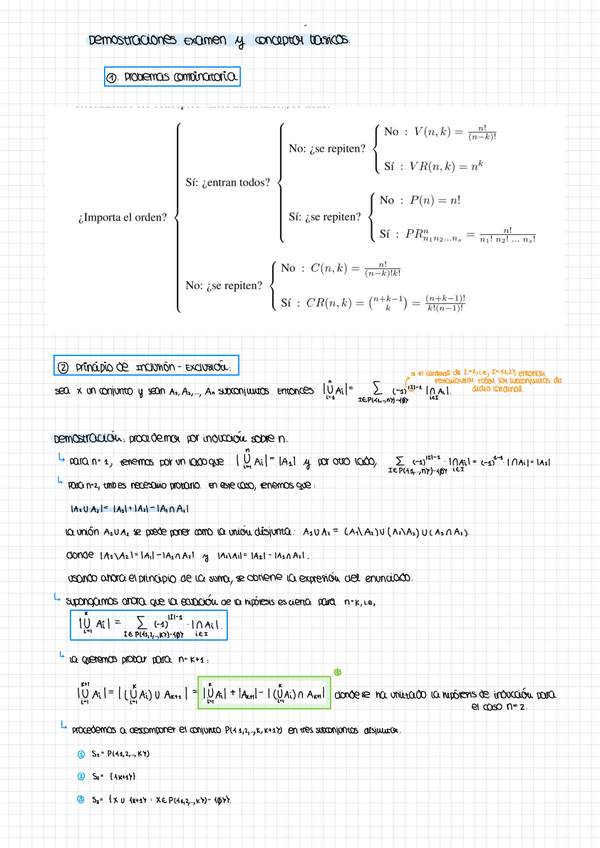 Demostraciones Examen y conceptos basicos.
①. Problemas Combinatoria
¿Importa el orden?
Sí: ¿entran todos?
No: ¿se repiten?
No : V(n, k) = n!/(n−k)!
Sí : VR(n, k) = n^k
Sí: ¿se repiten?
No : P(n) = n!
Sí : PR^n_{n1 n2...ns} = n!/(n1! n2! ... ns!)
No: ¿se repiten?
No : C(n, k) = n!/((n−k)!k!)
Sí : CR(n, k) = (n+k−1 k) = (n+k−1)!/(k!(n−1)!)
② Principio de Inclusión - Exclusión:
si el cardinal de I=2, i.e, I={1,2}, entonces
estarían todos los subconjuntos de
dicho cardinal.
sea X un conjunto y sean A1, A2, ..., An subconjuntos entonces |⋃_{i=1}^n Ai| = Σ_{I∈P({1,..,n})-{∅}} (-1)^{|I|-1} |⋂_{i∈I} Ai|
Demostración: procedemos por inducción sobre n.
↳ Para n=1, tenemos por un lado que |⋃_{i=1}^n Ai| = |A1| y por otro lado, Σ_{I∈P({1,..,n})-{∅}} (-1)^{|I|-1} · |⋂_{i∈I} Ai| = (-1)^{1-1} · |⋂Ai| = |A1|
↳ Para n=2, tmb es necesario probarlo. en este caso, tenemos que:
|A1 ∪ A2| = |A1| + |A2| - |A1 ∩ A2|
la unión A1 ∪ A2 se puede poner como la unión disjunta: A1 ∪ A2 = (A1\A2) ∪ (A2\A1) ∪ (A2 ∩ A1).
donde |A1\A2| = |A1| - |A1 ∩ A2| y |A2\A1| = |A2| - |A2 ∩ A1|.
usando ahora el principio de la suma, se obtiene la expresión del enunciado.
↳ supongamos ahora que la ecuación de la hipótesis es cierta para n=k, i.e,
|⋃_{i=1}^k Ai| = Σ_{I∈P({1,2,..,k})-{∅}} (-1)^{|I|-1} · |⋂_{i∈I} Ai|.
↳ la queremos probar para n=k+1:
|⋃_{i=1}^{k+1} Ai| = |(⋃_{i=1}^k Ai) ∪ A_{k+1}| = |⋃_{i=1}^k Ai| + |A_{k+1}| - |(⋃_{i=1}^k Ai) ∩ A_{k+1}| donde se ha utilizado la hipótesis de inducción para
el caso n=2.
↳ procedemos a descomponer el conjunto P({1,2,..,k,k+1}) en tres subconjuntos disjuntos:
① S1 = P({1,2,..,k})
② S2 = {{k+1}}
③ S3 = {X ∪ {k+1} : X∈P({1,2,..,k})-{∅}}.